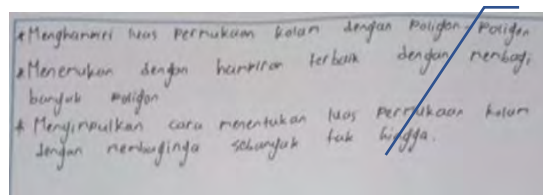 * Menghampiri luas permukaan kolam dengan Poligon-Poligon
* Menemukan dengan hampiran terbaik dengan membagi
banyak poligon
* Menyimpulkan cara menentukan luas permukaan kolam
dengan membaginya sebanyak tak hingga.